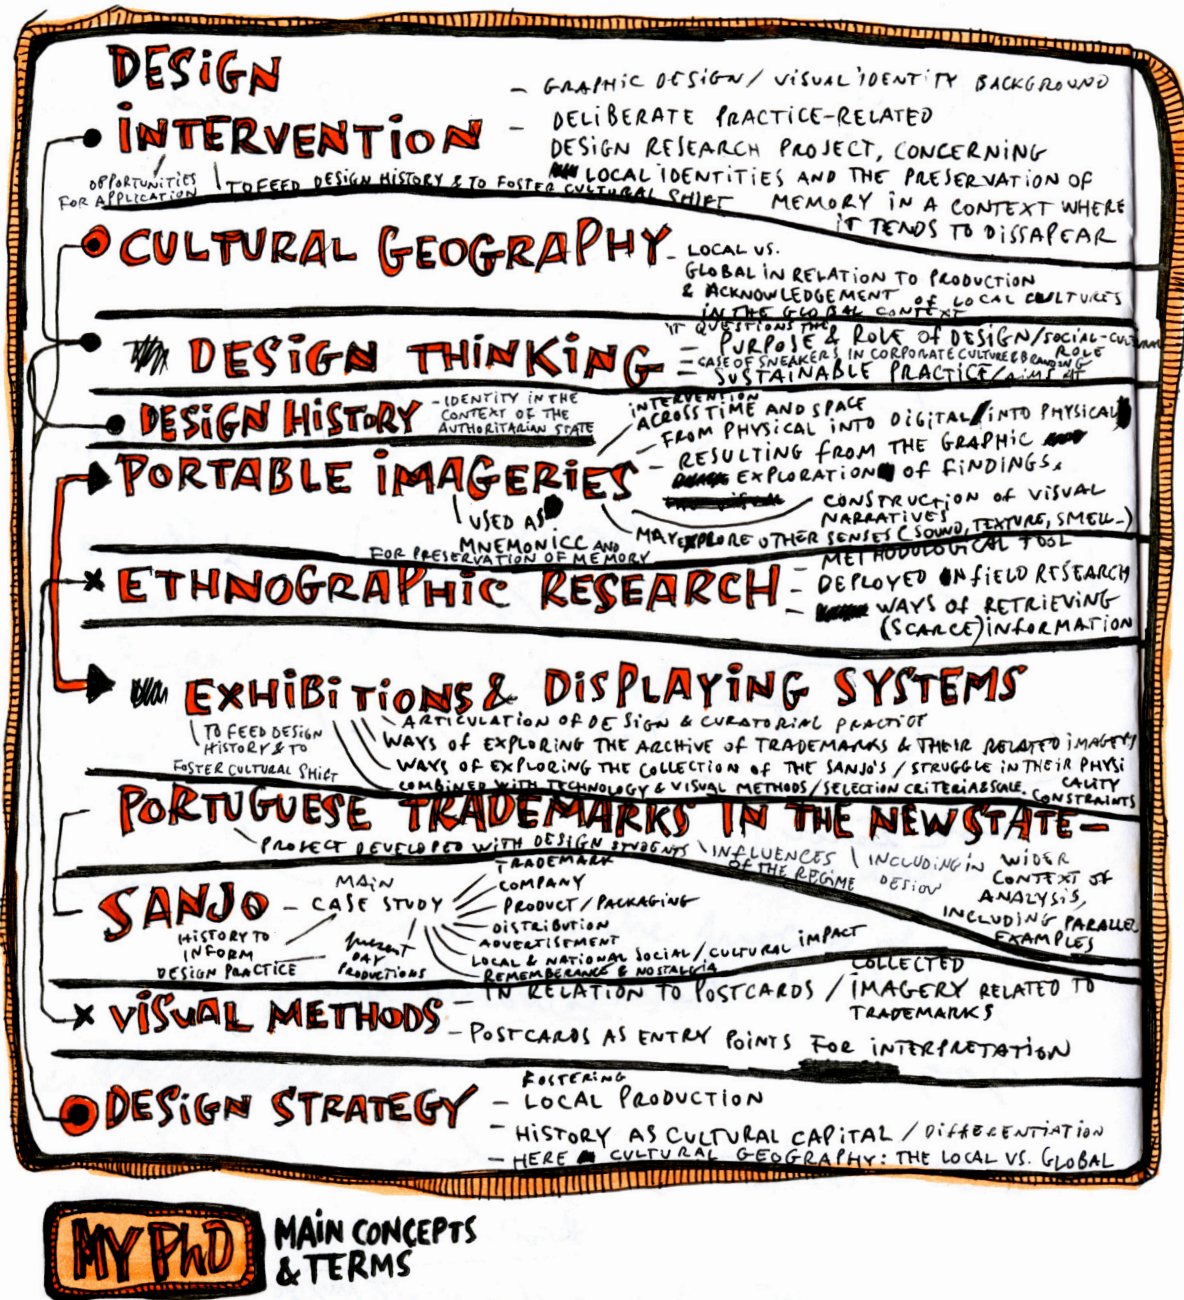 DESIGN
INTERVENTION
- GRAPHIC DESIGN / VISUAL IDENTITY BACKGROUND
- DELIBERATE PRACTICE-RELATED
DESIGN RESEARCH PROJECT, CONCERNING
LOCAL IDENTITIES AND THE PRESERVATION OF
MEMORY IN A CONTEXT WHERE
IT TENDS TO DISSAPEAR
OPPORTUNITIES
FOR APPLICATION
TO FEED DESIGN HISTORY & TO FOSTER CULTURAL SHIFT
CULTURAL GEOGRAPHY
- LOCAL VS.
GLOBAL IN RELATION TO PRODUCTION
& ACKNOWLEDGEMENT OF LOCAL CULTURES
IN THE GLOBAL CONTEXT
DESIGN THINKING
IT QUESTIONS THE
- PURPOSE & ROLE OF DESIGN/SOCIAL-CULTURAL
ROLE
- CASE OF SNEAKERS IN CORPORATE CULTURE & BRANDING
- SUSTAINABLE PRACTICE/AIMS AT
INTERVENTION
DESIGN HISTORY
- IDENTITY IN THE
CONTEXT OF THE
AUTHORITARIAN STATE
PORTABLE IMAGERIES
ACROSS TIME AND SPACE
- FROM PHYSICAL INTO DIGITAL/INTO PHYSICAL
- RESULTING FROM THE GRAPHIC
EXPLORATION OF FINDINGS.
CONSTRUCTION OF VISUAL
NARRATIVES
MAY EXPLORE OTHER SENSES (SOUND, TEXTURE, SMELL...)
USED AS
MNEMONICC AND
FOR PRESERVATION OF MEMORY
ETHNOGRAPHIC RESEARCH
METHODOLOGICAL TOOL
- DEPLOYED IN FIELD RESEARCH
- WAYS OF RETRIEVING
(SCARCE) INFORMATION
EXHIBITIONS & DISPLAYING SYSTEMS
TO FEED DESIGN
HISTORY & TO
FOSTER CULTURAL SHIFT
ARTICULATION OF DESIGN & CURATORIAL PRACTICE
WAYS OF EXPLORING THE ARCHIVE OF TRADEMARKS & THEIR RELATED IMAGERY
WAYS OF EXPLORING THE COLLECTION OF THE SANJO'S / STRUGGLE IN THEIR PHYSI
CALITY
COMBINED WITH TECHNOLOGY & VISUAL METHODS / SELECTION CRITERIA & SCALE,
CONSTRAINTS
PORTUGUESE TRADEMARKS IN THE NEW STATE -
PROJECT DEVELOPED WITH DESIGN STUDENTS
INFLUENCES
OF THE REGIME
INCLUDING IN
DESIGN
WIDER
CONTEXT OF
ANALYSIS,
INCLUDING PARALLEL
EXAMPLES
SANJO
- MAIN
CASE STUDY
TRADEMARK
COMPANY
PRODUCT / PACKAGING
DISTRIBUTION
ADVERTISEMENT
LOCAL & NATIONAL SOCIAL / CULTURAL IMPACT
REMEMBERANCE & NOSTALGIA
HISTORY TO
INFORM
DESIGN PRACTICE
PRESENT
DAY
PRODUCTIONS
VISUAL METHODS
- IN RELATION TO POSTCARDS /
COLLECTED
IMAGERY RELATED TO
TRADEMARKS
- POSTCARDS AS ENTRY POINTS FOR INTERPRETATION
DESIGN STRATEGY
FOSTERING
- LOCAL PRODUCTION
- HISTORY AS CULTURAL CAPITAL / DIFFERENTIATION
- HERE CULTURAL GEOGRAPHY: THE LOCAL VS. GLOBAL
MY PHD
MAIN CONCEPTS
& TERMS